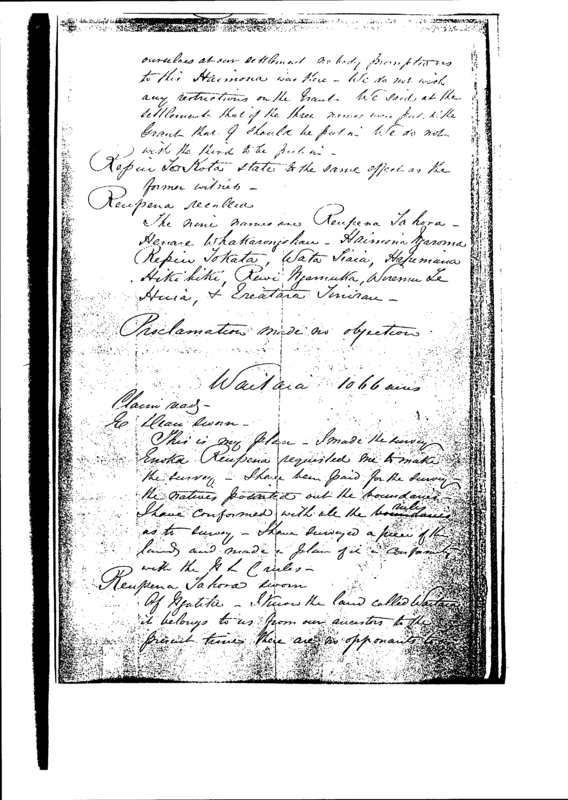 ourselves at our settlement nobody prompted us
to this Haimona was there - We do not wish
any restrictions on the Grant - We said at the
settlement that if the three names were put in the
Grant that I should be put in We do not
wish the third to be put in -
Repiu Te Kota state to the same effect as the
former witness -
Reupena recalled
The nine names are Reupena Tahora -
Henare - Haimona Ngaroma
Repiu Tokota, Wata Siaia, Hapimana
Hikihiki, Rewi Ngamuka, Wiremu Te
Huia, & Ereatara Tinirau -
Proclamation made no objection
Waitaia 1066 acres
Claim read -
E Dean sworn -
This is my plan - I made the survey
Enoka Reupena requested me to make
the survey - I have been paid for the survey
the natives pointed out the boundaries
I have conformed with all the boundaries rules
as to survey - I have surveyed a piece of the
land and made a plan of it in conformity
with the N L C rules -
Reupena Tahora sworn
Of Ngatitu - I know the land called
it belongs to us from our ancestors to the
present time there are no opponents to